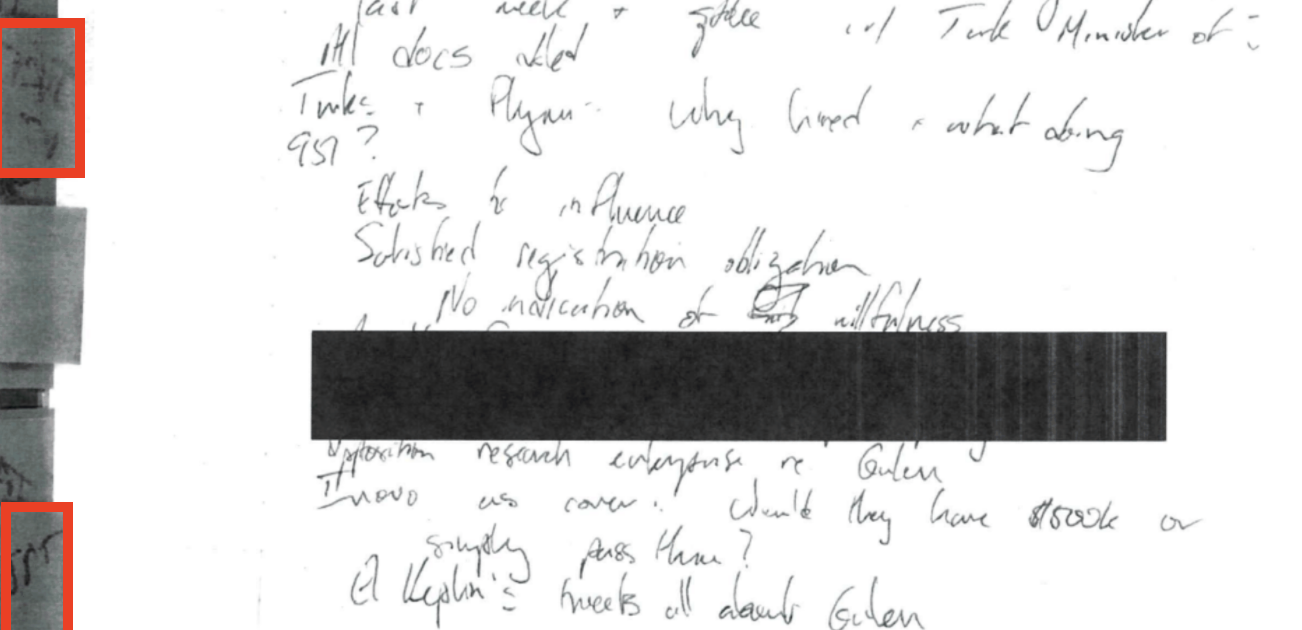 last week + gave w/ Turk Minister of
All docs
Turks + Flynn - Why hired + what doing
951?
Efforts to influence
Satisfied registration obligation
No indication of willfulness
Opposition research enterprise re Gulen
Inovo as cover. Would they have $500k or
simply pass thru?
Ekim Alptekin's tweets all about Gulen